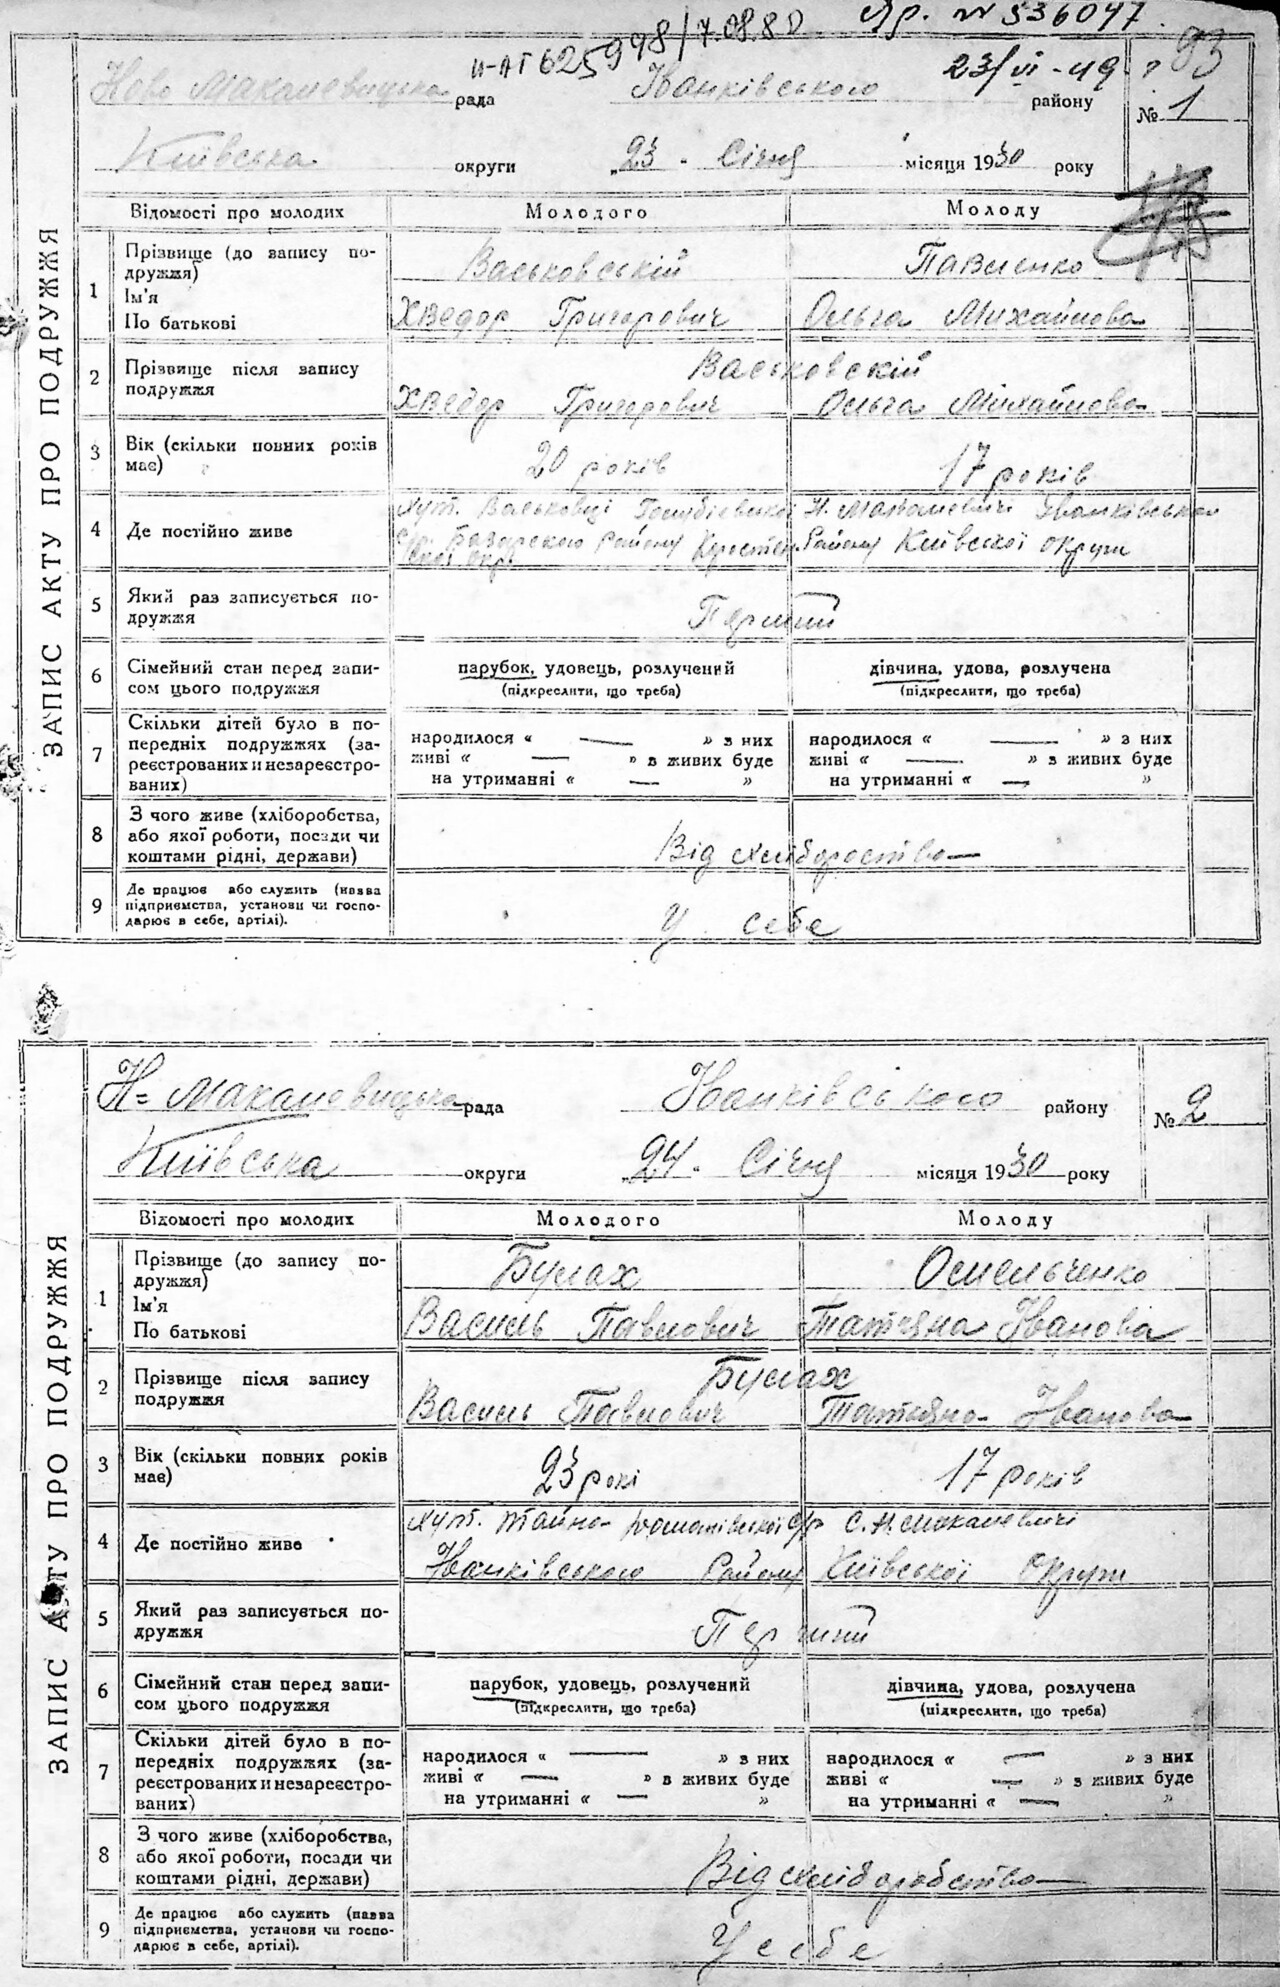 И-АГ 625998/7.08.80 Яр. № 536047
93
Ново Макалевицька рада Іванківського району 23/VI-49 р
№ 1
Київська округи „23 - Січня місяця 1930 року
ЗАПИС АКТУ ПРО ПОДРУЖЖЯ
Відомості про молодих Молодого Молоду
1 Прізвище (до запису по-
дружжя) Васьковській Павленко
Ім'я
По батькові Хведор Григорович Ольга Михайлова
2 Прізвище після запису Васьковскій
подружжя Хведор Григорович Ольга Михайлова
3 Вік (скільки повних років
має) 20 років 17 років
4 Де постійно живе
Хут. Васьковці Голубієвицкої Н. Макалевичі Іванківського
с/р. Базарского Району Коростен. Району Київскої округи
скої окр.
5 Який раз записується по-
дружжя Перший
6 Сімейний стан перед запи- парубок, удовець, розлучений дівчина, удова, розлучена
сом цього подружжя (підкреслити, що треба) (підкреслити, що треба)
7 Скільки дітей було в по-
передніх подружжях (за-
реєстрованих и незареєстро-
ваних)
народилося « — » з них народилося « — » з них
живі « — » в живих буде живі « — » з живих буде
на утриманні « — » на утриманні « — »
8 З чого живе (хліборобства,
або якої роботи, посади чи
коштами рідні, держави) Від хлібороство
9 Де працює або служить (назва
підприємства, установи чи госпо-
дарює в себе, артілі). У себе
ЗАПИС АКТУ ПРО ПОДРУЖЖЯ
Н= Макалевицька рада Іванківського району
№ 2
Київська округи „24 - Січня місяця 1930 року
Відомості про молодих Молодого Молоду
1 Прізвище (до запису по-
дружжя) Булах Омельченко
Ім'я
По батькові Василь Павлович Татьяна Іванова
2 Прізвище після запису Булах
подружжя Василь Павлович Татьяна Іванова
3 Вік (скільки повних років
має) 23 рокі 17 років
4 Де постійно живе
Хут. с/р С. Н. Макалевичі
Іванківського Району Київської Округи
5 Який раз записується по-
дружжя Перший
6 Сімейний стан перед запи- парубок, удовець, розлучений дівчина, удова, розлучена
сом цього подружжя (підкреслити, що треба) (підкреслити, що треба)
7 Скільки дітей було в по-
передніх подружжях (за-
реєстрованих и незареєстро-
ваних)
народилося « — » з них народилося « — » з них
живі « — » в живих буде живі « — » з живих буде
на утриманні « — » на утриманні « — »
8 З чого живе (хліборобства,
або якої роботи, посади чи
коштами рідні, держави) Від хліборобство
9 Де працює або служить (назва
підприємства, установи чи госпо-
дарює в себе, артілі). У себе